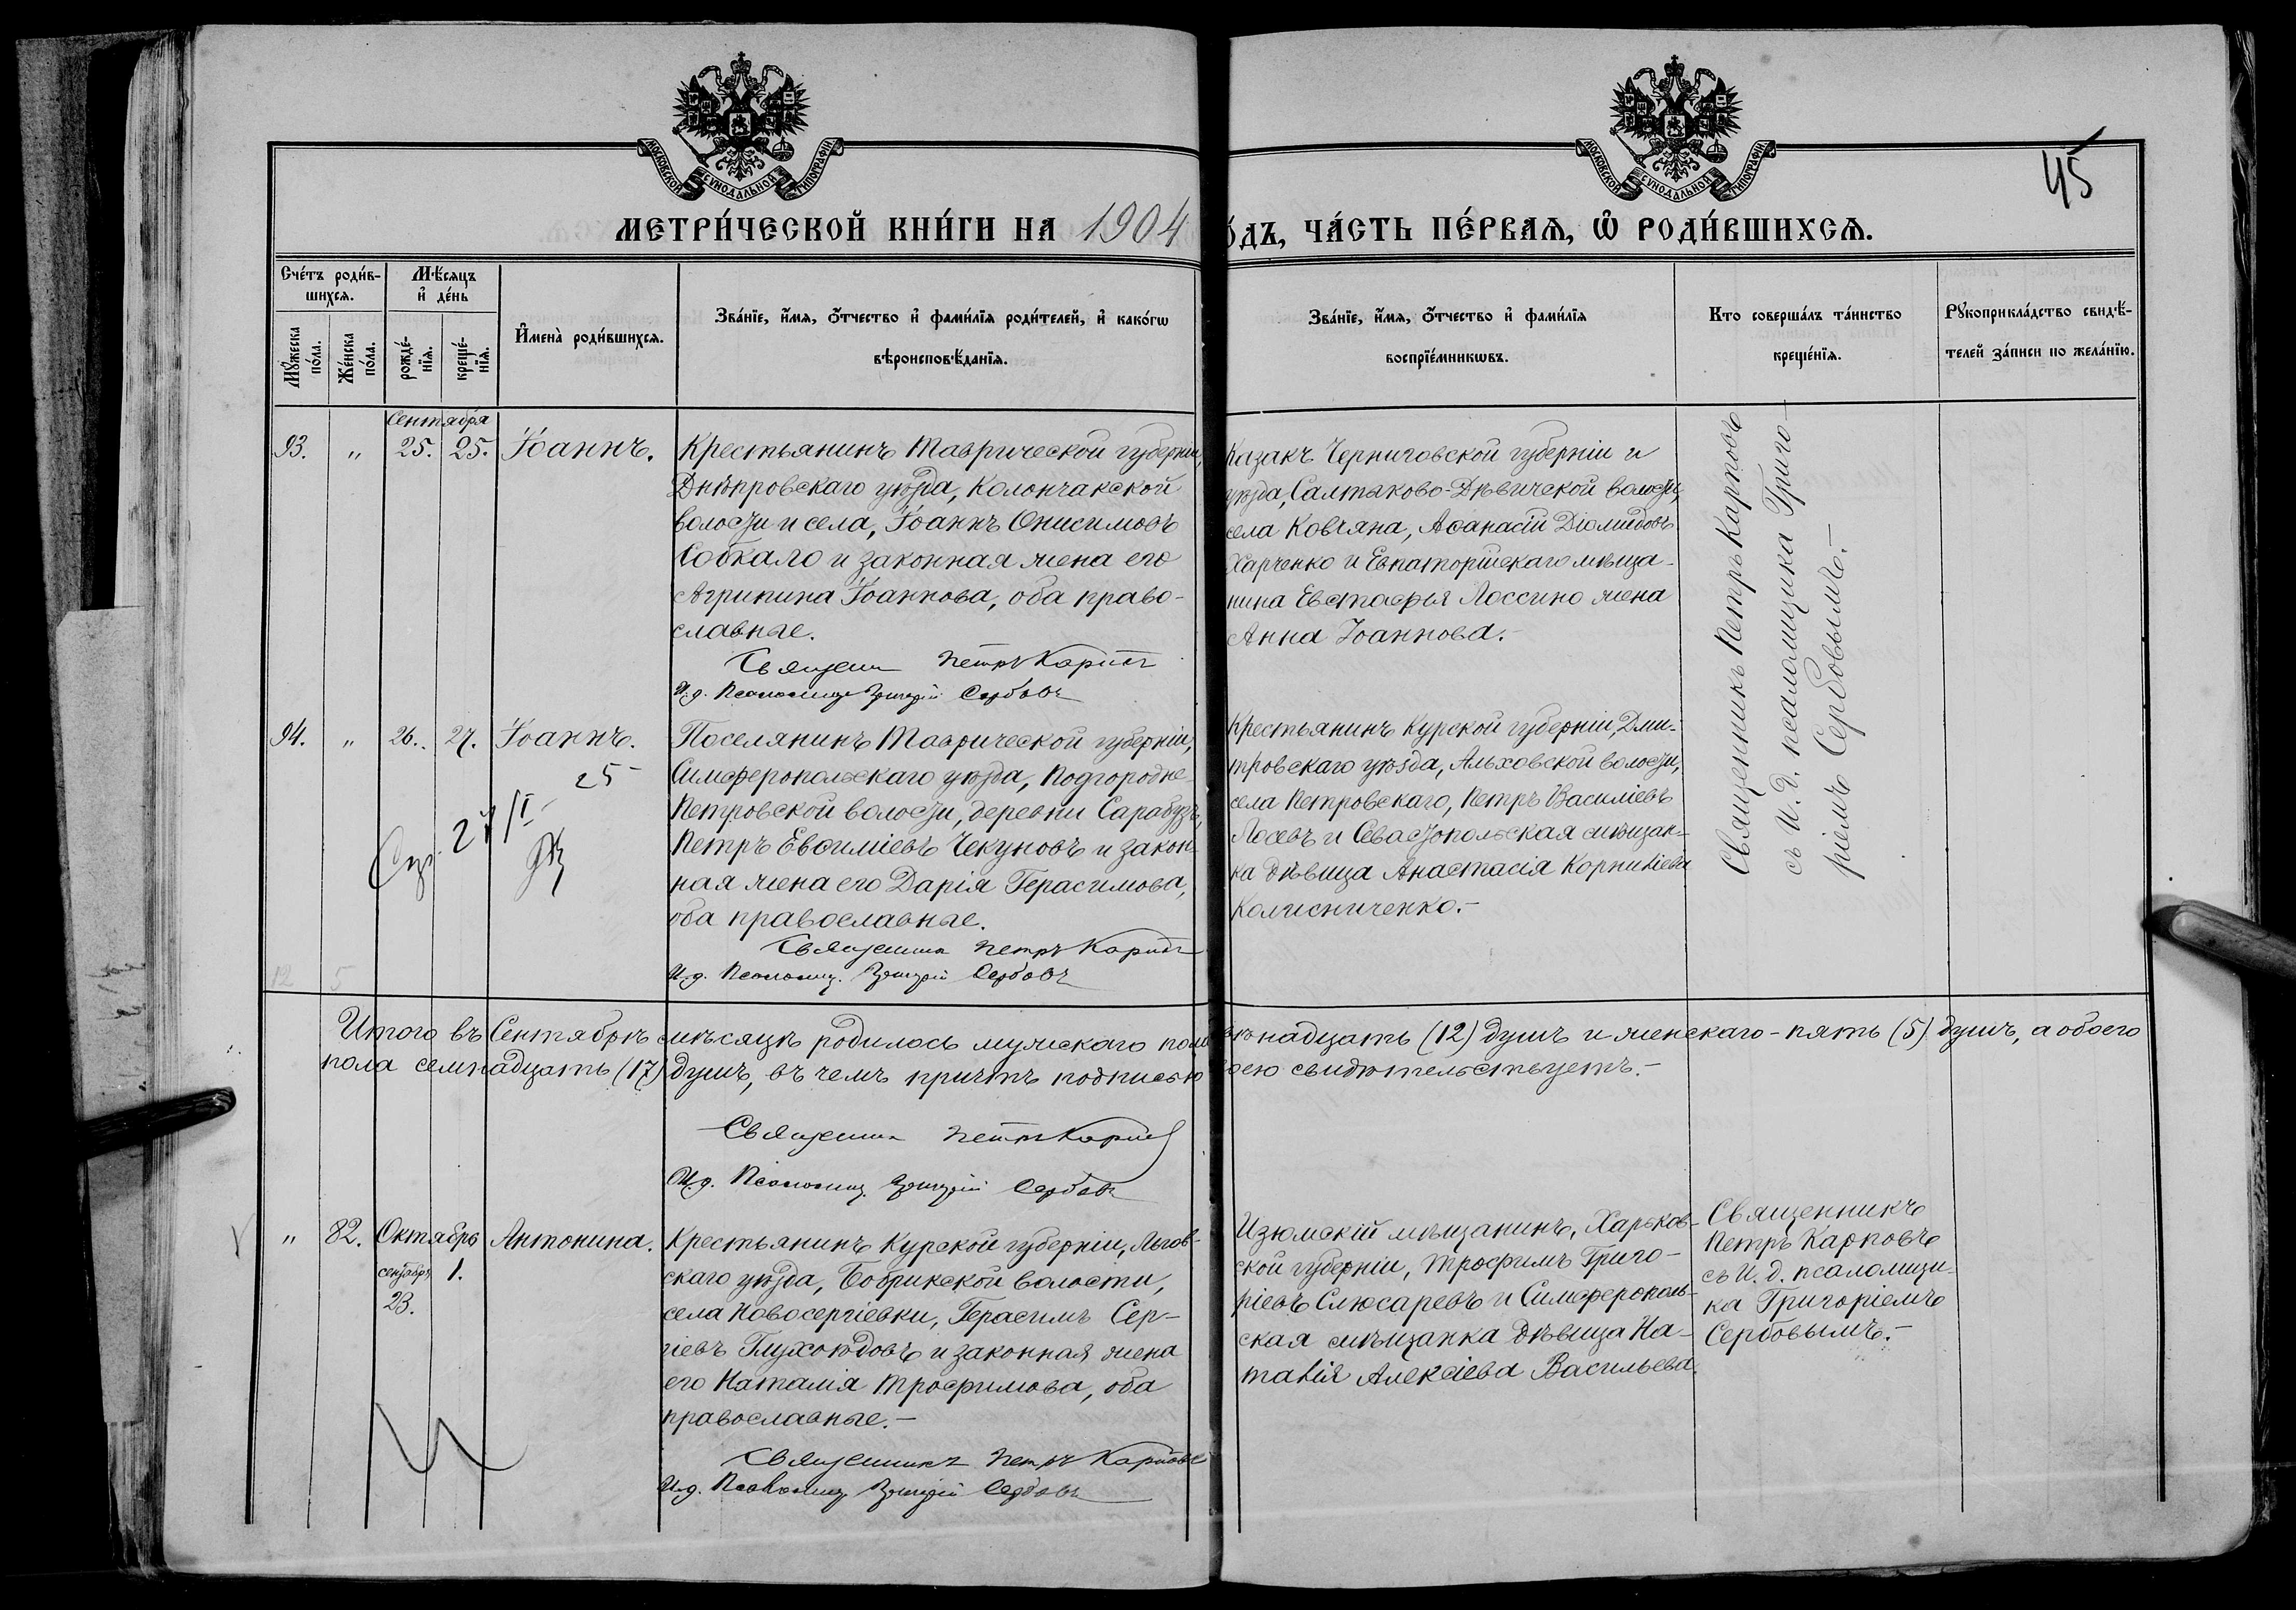 МОСКОВСКОЙ СѴНОДАЛЬНОЙ ТИПОГРАФІИ
МОСКОВСКОЙ СѴНОДАЛЬНОЙ ТИПОГРАФІИ
45
МЕТРИ́ЧЕСКОЙ КНИ́ГИ НА 1904
О́ДЪ, ЧА́СТЬ ПЕ́РВАѦ, Ѡ РОДИ́ВШИХСѦ.
Сче́тъ роди́в-
шихсѧ.
Мꙋ́жеска по́ла.
Же́нска по́ла.
Мѣ́сяцъ
и҆ де́нь
рожде́-
нїѧ.
креще́-
нїѧ.
И҆мена̀ роди́вшихсѧ.
Зва́нїе, и҆́мѧ, ѻ҆́тчество и҆ фами́лїѧ роди́телей, и҆ како́гѡ
вѣроисповѣ́данїѧ.
Зва́нїе, и҆́мѧ, ѻ҆́тчество и҆ фами́лїѧ
воспрїе́мникѡвъ.
Кто соверша́лъ та́инство
креще́нїѧ.
Рꙋкоприкла́дство свидѣ́-
телей за́писи по жела́нїю.
Сентября
93. „ 25. 25. Іоаннъ.
Крестьянинъ Таврической губерніи,
Днѣпровскаго уѣзда, Колончакской
волости и села, Іоаннъ Онисимовъ
Собкало и законная жена его
Агрипина Іоаннова, оба право-
славные.
Священн Петръ Карповъ
И.д. Псаломщ Григорій Сербовъ
Казакъ Черниговской губерніи и
уѣзда, Салтыково-Дѣвичской волости,
села Ковчяна, Аѳанасій Діомидовъ
Харченко и Евпаторійскаго мѣща-
нина Евстафья Лоссино жена
Анна Іоаннова.-
Священникъ Петръ Карповъ
съ И. д. псаломщика Григо-
ріемъ Сербовымъ.-
94. „ 26. 27. Іоаннъ.
25
27/I
Поселянинъ Таврической губерніи,
Симферопольскаго уѣзда, Подгородне-
Петровской волости, деревни Сарабузъ,
Петръ Евѳиміевъ Чекуновъ и закон-
ная жена его Дарія Герасимова,
оба православные.
Священник Петръ Карповъ
И.д. Псаломщ. Григорій Сербовъ
Крестьянинъ Курской губерніи, Дми-
тровскаго уѣзда, Альховской волости,
села Петровскаго, Петръ Василіевъ
Лосевъ и Севастопольская мѣщан-
ка дѣвица Анастасія Корниліева
Колисниченко.-
12 5
Итого въ Сентябрѣ мѣсяцѣ родилось мужскаго пола
ѣнадцать (12) душъ и женскаго - пять (5) душъ, а обоего
пола семнадцать (17) душъ, въ чемъ причтъ подписью
оею свидѣтельствуетъ.-
Священник Петръ Карповъ
И.д. Псаломщ. Григорій Сербовъ
„ 82. Октябрь Антонина.
сентября 1.
23.
Крестьянинъ Курской губерніи, Льгов-
скаго уѣзда, Бобрикской волости,
села Новосергіевки, Герасимъ Сер-
гіевъ Глухоѣдовъ и законная жена
его Наталія Трофимова, оба
православные.-
Священникъ Петръ Карповъ
И.д. Псаломщ Григорій Сербовъ
Изюмскій мѣщанинъ, Харьков-
ской губерніи, Трофимъ Григо-
ріевъ Слюсаревъ и Симферополь-
ская мѣщанка дѣвица На-
талія Алексіева Васильева.
Священникъ
Петръ Карповъ
съ И. д. псаломщи-
ка Григоріемъ
Сербовымъ.-